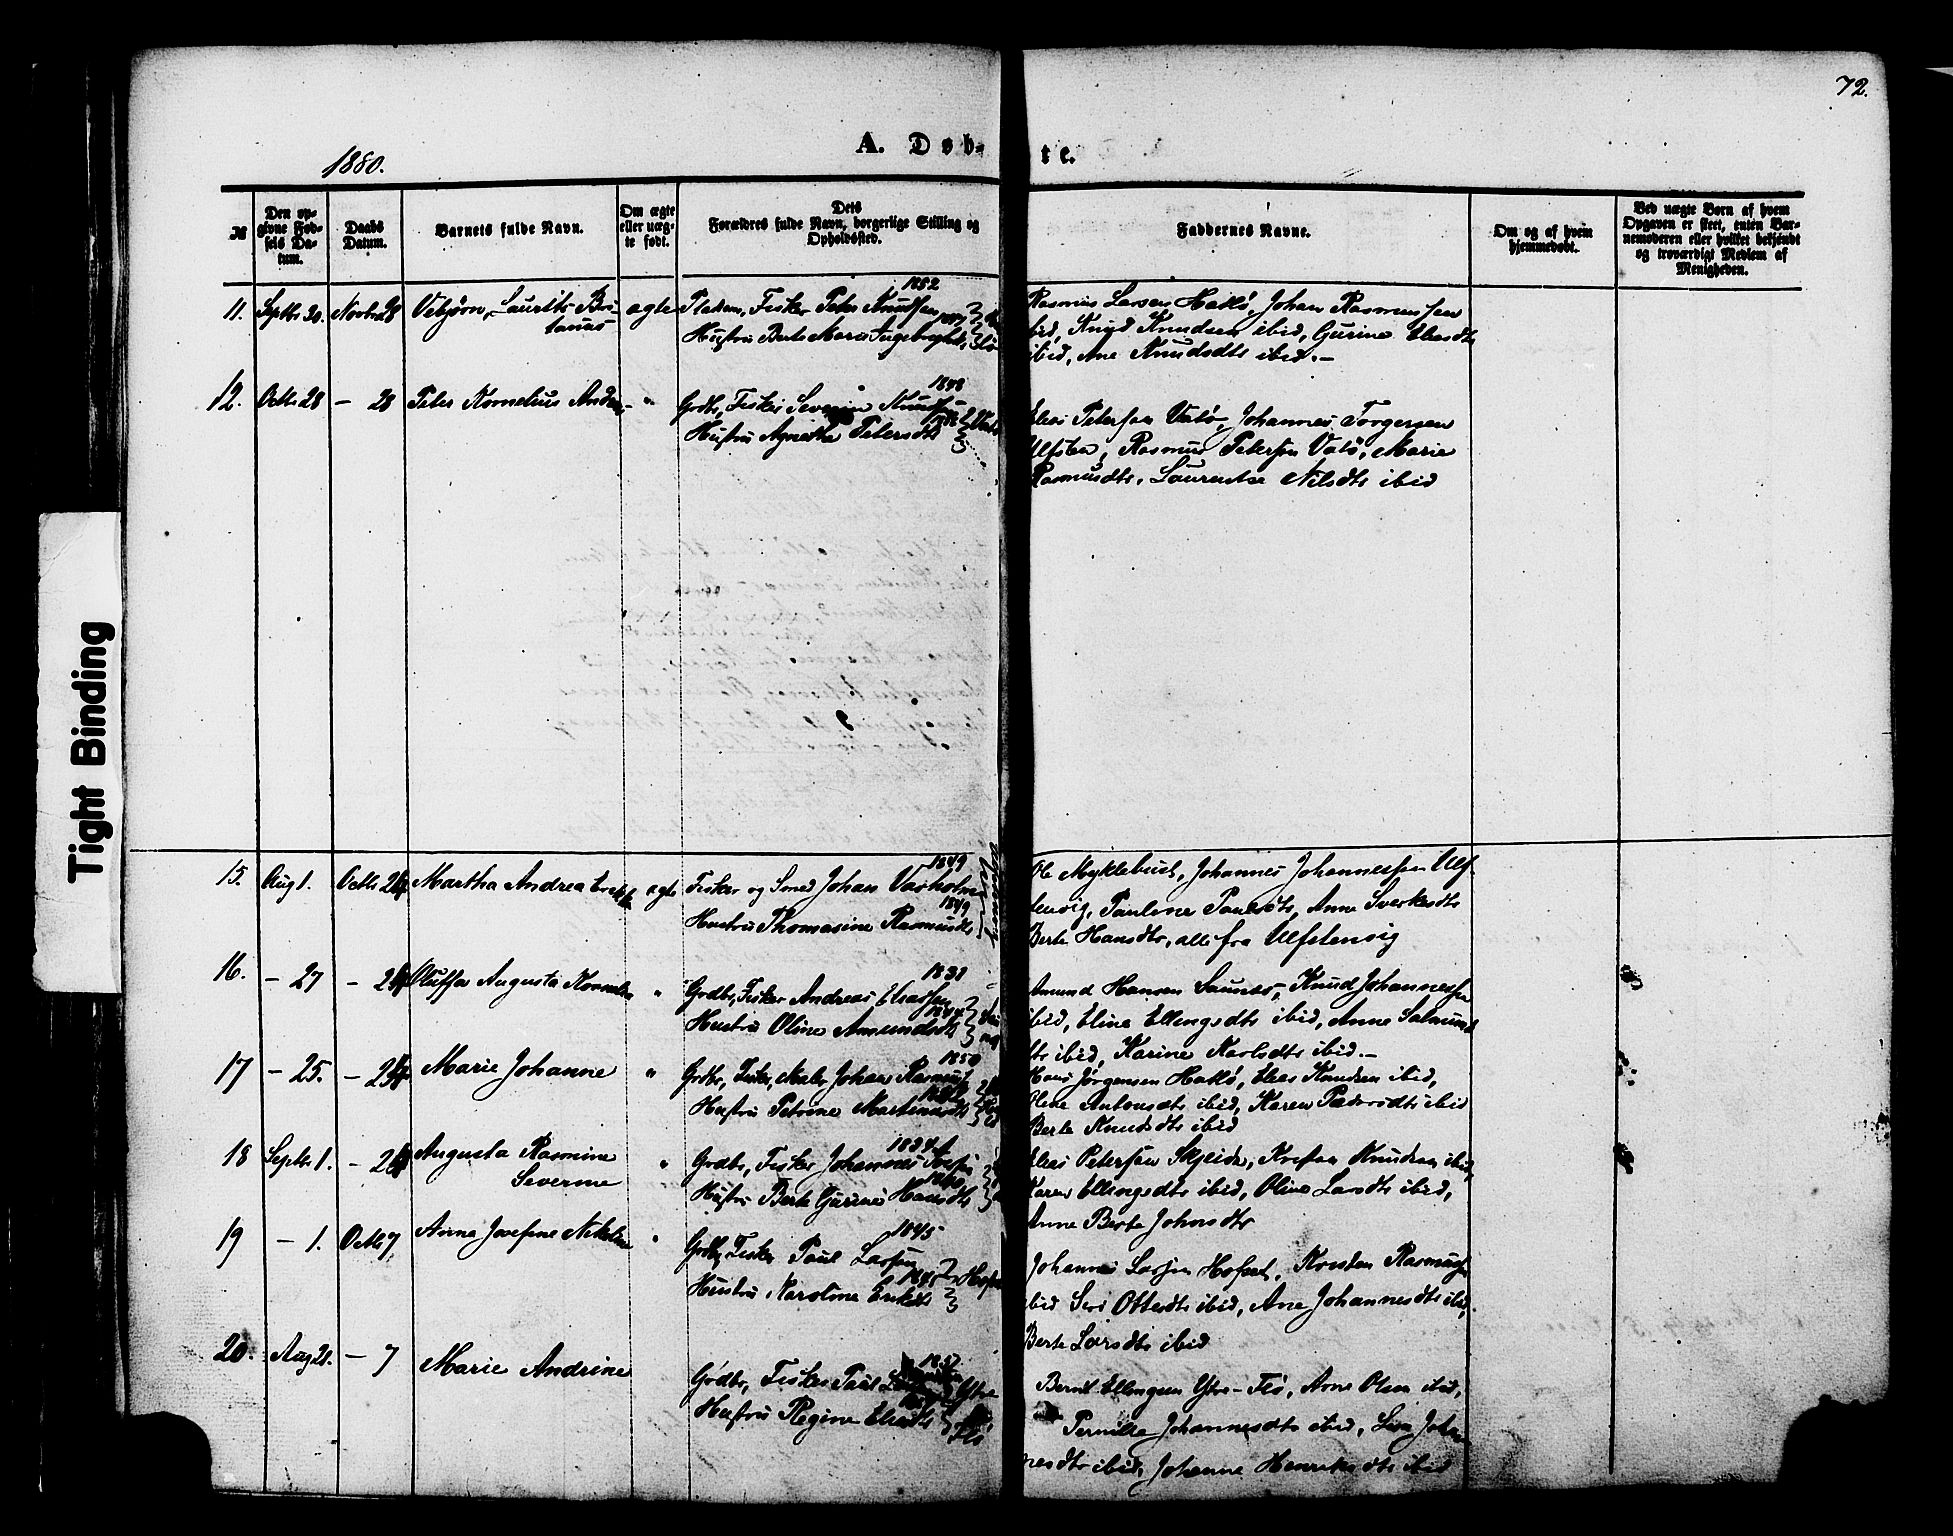 72.
1880.
A. Døb-
te.
№
Den op-
givne Fød-
sels Da-
tum.
Daabs
Datum.
Barnets fulde Navn.
Om ægte
eller uæg-
te født.
Dets
Forældres fulde Navn, borgerlige Stilling og
Opholdssted.
Faddernes Navne.
Om og af hvem
hjemmedøbt.
Ved uægte Børn af hvem
Opgaven er skeet, enten Bar-
nemoderen eller hvilket bekjendt
og troværdigt Medlem af
Menigheden.
11. Septbr 30. Novbr 28 Vebjørn Laurits Bri-
tanus
ægte
1852
Pladsm, Fisker Peter Knudsen
Hustru Berte Marie Ingebrigtsdt
Rasmus Larsen Hatlø, Johan Rasmussen
ibid, Knud Knudsen ibid, Gurine Eleasdtr
ibid, Ane Knudsdtr ibid.-
12. Octbr 28 - 28 Peter Kornelius Andreas
"
1848
Grdbr, Fisker Severin Knudsen
Hustru Agnethe Petersdtr
Eleas Petersen Vatø, Johannes Torgersen
Ulfsten, Rasmus Petersen Vatø, Marie
Rasmusdtr, Laurentse Nilsdtr ibid
Tight Binding
15. Aug 1. Octbr 24 Martha Andrea
ægte
1849
Fisker og Smed Johan Varholm
1849
Hustru Thomasine Rasmusdtr
Ole Myklebust, Johannes Johannessen Ulf-
stenvig, Pauline Paulsdtr, Anne Sverkesdtr
Berte Hansdtr, alle fra Ulfstenvig
16. - 27 - 24 Oluffa Augusta Kornelia
"
Grdbr, Fisker Andreas Eleassen
Hustru Oline Amundsdtr
Amund Hansen Saunes, Knud Johannessen
ibid, Eline Ellingsdtr ibid, Anne Salmunds-
dtr ibid, Karine Karlsdtr ibid.-
17 - 25. - 24 Marie Johanne
"
1850
Grdbr, Fisker, Maler Johan Rasmus
Hustru Petrine Martinusdtr
Hans Jørgensen Hatlø, Eleas Knudsen ibid,
Oline Antonsdtr ibid, Karen Pedersdtr ibid
Berte Knudsdtr ibid
18 Septbr 1. - 24 Augusta Rasmine
Severine
"
1834
Grdbr, Fisker Johannes
Hustru Berte Gurine Hansdtr
Eleas Petersen Skjeide, Knudsen ibid,
Karen Ellingsdtr ibid, Oline Larsdtr ibid,
Anne Berte Johnsdtr
19 - 1. Octbr 7, Anna Josefine Nikoline
"
1845
Grdbr, Fisker Paul Larsen
1845
Hustru Karoline Eriksdtr
Johannes Larsen Hofset, Karsten Rasmussen
ibid Siri Ottesdtr ibid, Ane Johannesdtr ibid,
Berte Larsdtr ibid
20. Aug 21. - 7 Marie Andrine
1857
Grdbr, Fisker Paul
Ytre
Hustru Regine Eleasdtr
Flø
Bernt Ellingsen Ytre-Flø, Arne Olsen ibid,
Pernille Johannesdtr ibid, Lise Johan-
nesdtr ibid, Johanne Henriksdtr ibid